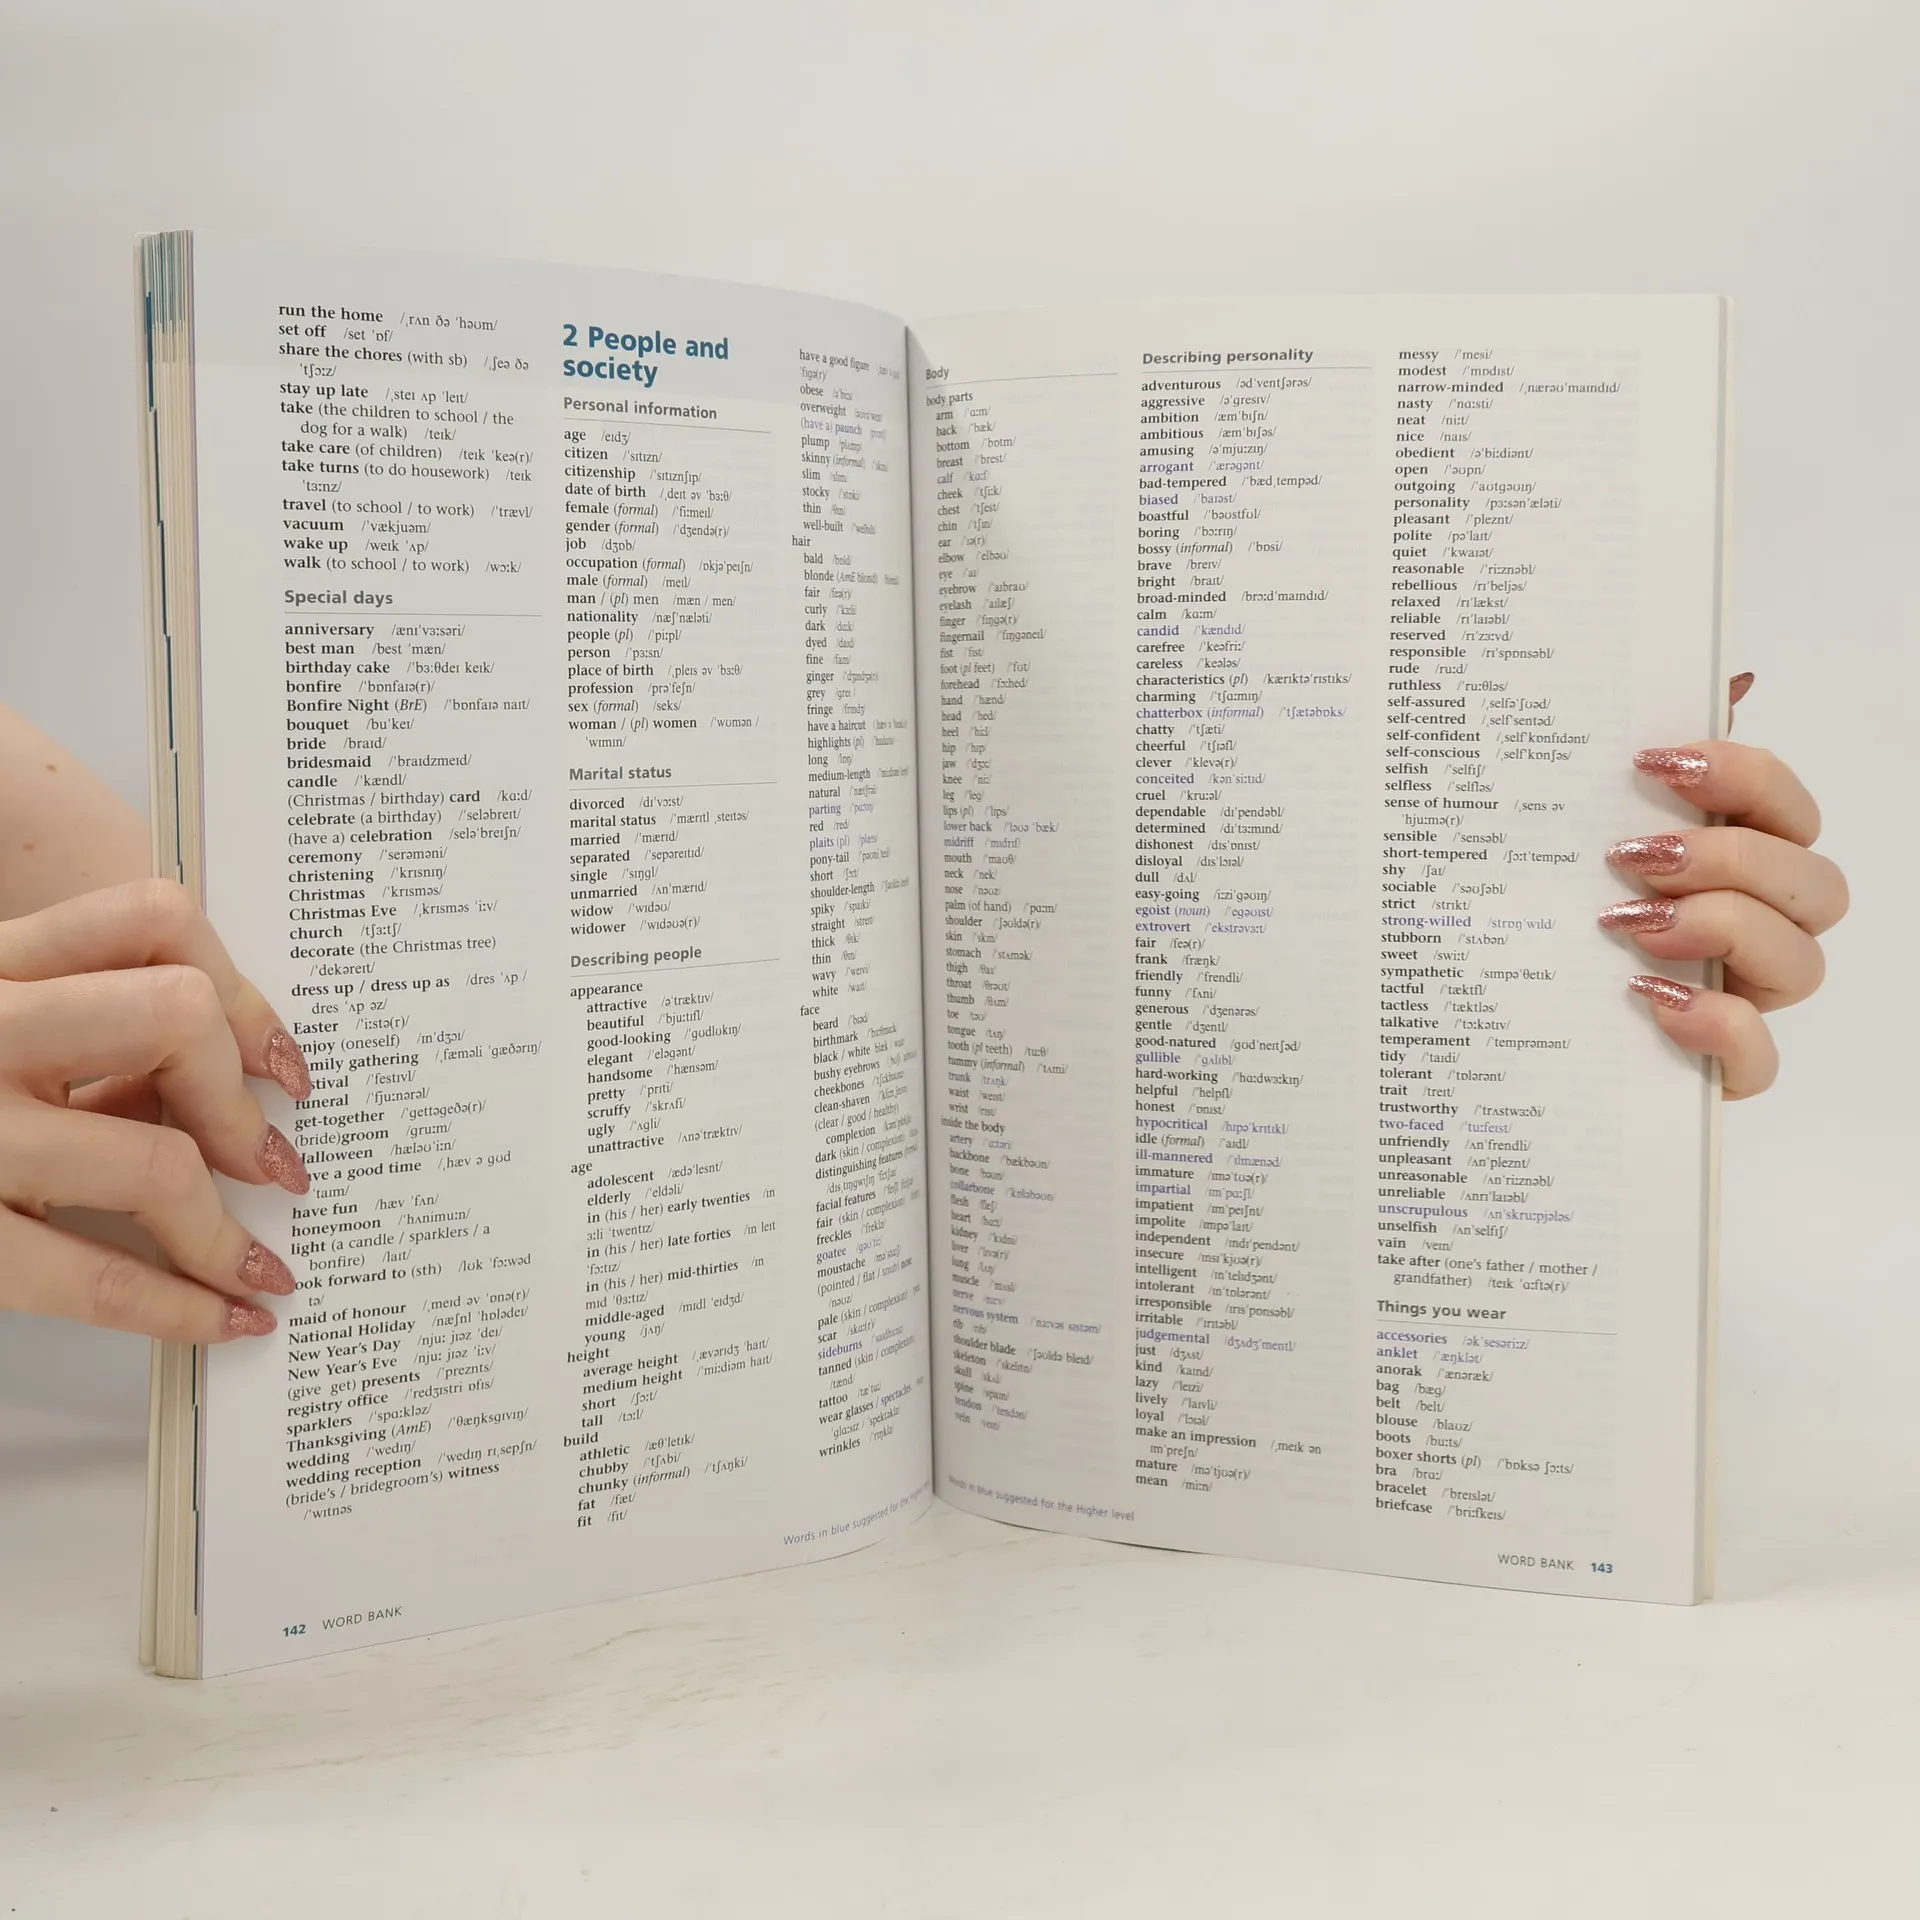 run the home /ˌrʌn ðə ˈhəʊm/
set off /set ˈɒf/
share the chores (with sb) /ˌʃeə ðə
ˈtʃɔːz/
stay up late /ˌsteɪ ʌp ˈleɪt/
take (the children to school / the
dog for a walk) /teɪk/
take care (of children) /teɪk ˈkeə(r)/
take turns (to do housework) /teɪk
ˈtɜːnz/
travel (to school / to work) /ˈtrævl/
vacuum /ˈvækjuəm/
wake up /weɪk ˈʌp/
walk (to school / to work) /wɔːk/
Special days
anniversary /ænɪˈvɜːsəri/
best man /best ˈmæn/
birthday cake /ˈbɜːθdeɪ keɪk/
bonfire /ˈbɒnfaɪə(r)/
Bonfire Night (BrE) /ˈbɒnfaɪə naɪt/
bouquet /buˈkeɪ/
bride /braɪd/
bridesmaid /ˈbraɪdzmeɪd/
candle /ˈkændl/
(Christmas / birthday) card /kɑːd/
celebrate (a birthday) /ˈseləbreɪt/
(have a) celebration /seləˈbreɪʃn/
ceremony /ˈserəməni/
christening /ˈkrɪsnɪŋ/
Christmas /ˈkrɪsməs/
Christmas Eve /ˌkrɪsməs ˈiːv/
church /tʃɜːtʃ/
decorate (the Christmas tree)
/ˈdekəreɪt/
dress up / dress up as /dres ˈʌp /
dres ˈʌp əz/
Easter /ˈiːstə(r)/
njoy (oneself) /ɪnˈdʒɔɪ/
mily gathering /ˌfæməli ˈgæðərɪŋ/
stival /ˈfestɪvl/
funeral /ˈfjuːnərəl/
get-together /ˈgettəgeðə(r)/
(bride)groom /gruːm/
alloween /hæləʊˈiːn/
ve a good time /ˌhæv ə gʊd
ˈtaɪm/
have fun /hæv ˈfʌn/
honeymoon /ˈhʌnimuːn/
light (a candle / sparklers / a
bonfire) /laɪt/
ook forward to (sth) /lʊk ˈfɔːwəd
tə/
maid of honour /ˌmeɪd əv ˈɒnə(r)/
National Holiday /næʃnl ˈhɒlədeɪ/
New Year's Day /njuː jɪəz ˈdeɪ/
New Year's Eve /njuː jɪəz ˈiːv/
(give get) presents /ˈpreznts/
registry office /ˈredʒɪstri ɒfɪs/
sparklers /ˈspɑːkləz/
Thanksgiving (AmE) /ˈθæŋksgɪvɪŋ/
wedding /ˈwedɪŋ/
wedding reception /ˈwedɪŋ rɪˌsepʃn/
(bride's / bridegroom's) witness
/ˈwɪtnəs
142 WORD BANK
2 People and
society
Personal information
age /eɪdʒ/
citizen /ˈsɪtɪzn/
citizenship /ˈsɪtɪznʃɪp/
date of birth /ˌdeɪt əv ˈbɜːθ/
female (formal) /ˈfiːmeɪl/
gender (formal) /ˈdʒendə(r)/
job /dʒɒb/
occupation (formal) /ɒkjəˈpeɪʃn/
male (formal) /meɪl/
man / (pl) men /mæn / men/
nationality /næʃˈnæləti/
people (pl) /ˈpiːpl/
person /ˈpɜːsn/
place of birth /ˌpleɪs əv ˈbɜːθ/
profession /prəˈfeʃn/
sex (formal) /seks/
woman / (pl) women /ˈwʊmən /
ˈwɪmɪn/
Marital status
divorced /dɪˈvɔːst/
marital status /ˈmærɪtl ˌsteɪtəs/
married /ˈmærɪd/
separated /ˈsepəreɪtɪd/
single /ˈsɪŋgl/
unmarried /ʌnˈmærɪd/
widow /ˈwɪdəʊ/
widower /ˈwɪdəʊə(r)/
Describing people
appearance
attractive /əˈtræktɪv/
beautiful /ˈbjuːtɪfl/
good-looking /ˈgʊdlʊkɪŋ/
elegant /ˈeləgənt/
handsome /ˈhænsəm/
pretty /ˈprɪti/
scruffy /ˈskrʌfi/
ugly /ˈʌgli/
unattractive /ʌnəˈtræktɪv/
age
adolescent /ædəˈlesnt/
elderly /ˈeldəli/
in (his / her) early twenties /ɪn
ɜːli ˈtwentɪz/
in (his / her) late forties /ɪn leɪt
ˈfɔːtɪz/
in (his / her) mid-thirties /ɪn
mɪd ˈθɜːtɪz/
middle-aged /mɪdl ˈeɪdʒd/
young /jʌŋ/
height
average height /ˌævərɪdʒ ˈhaɪt/
medium height /ˈmiːdiəm haɪt/
short /ʃɔːt/
tall /tɔːl/
build
athletic /æθˈletɪk/
chubby /ˈtʃʌbi/
chunky (informal) /ˈtʃʌŋki/
fat /fæt/
fit /fɪt/
have a good figure
ˈfɪgə(r)/
obese
overweight
(have a) paunch
plump
skinny (informal)
slim /slɪm/
stocky
thin
well-built
hair
bald
blonde (AmE blond)
fair /feə(r)/
curly
dark
dyed /daɪd/
fine
ginger
grey
fringe
have a haircut
highlights (pl)
long
medium-length
natural
parting
red /red/
plaits (pl)
pony-tail
short
shoulder-length
spiky
straight
thick
thin
wavy
white
face
beard
birthmark
black / white
bushy eyebrows
cheekbones
clean-shaven
(clear / good / healthy)
complexion
dark (skin / complexion)
distinguishing features
facial features
fair (skin / complexion)
freckles
goatee
moustache
(pointed / flat / snub) nose
/nəʊz/
pale (skin / complexion)
scar /skɑː(r)/
sideburns
tanned (skin / complexion)
/tænd/
tattoo
wear glasses / spectacles
wrinkles
Words in blue suggested for the Higher level
Body
body parts
arm /ˈɑːm/
back /ˈbæk/
bottom /ˈbɒtm/
breast /ˈbrest/
calf /ˈkɑːf/
cheek /ˈtʃiːk/
chest /ˈtʃest/
chin /ˈtʃɪn/
ear /ˈɪə(r)/
elbow /ˈelbəʊ/
eye /ˈaɪ/
eyebrow /ˈaɪbraʊ/
eyelash /ˈaɪlæʃ/
finger /ˈfɪŋgə(r)/
fingernail /ˈfɪŋgəneɪl/
fist /ˈfɪst/
foot (pl feet) /ˈfʊt/
forehead /ˈfɔːhed/
hand /ˈhænd/
head /ˈhed/
heel /ˈhiːl/
hip /ˈhɪp/
jaw /ˈdʒɔː/
knee /ˈniː/
leg /ˈleg/
lips (pl) /ˈlɪps/
lower back /ˈləʊə ˈbæk/
midriff /ˈmɪdrɪf/
mouth /ˈmaʊθ/
neck /ˈnek/
nose /ˈnəʊz/
palm (of hand) /ˈpɑːm/
shoulder /ˈʃəʊldə(r)/
skin /ˈskɪn/
stomach /ˈstʌmək/
thigh /θaɪ/
throat /θrəʊt/
thumb /θʌm/
toe /təʊ/
tongue /tʌŋ/
tooth (pl teeth) /tuːθ/
tummy (informal) /ˈtʌmi/
trunk /trʌŋk/
waist /weɪst/
wrist /rɪst/
inside the body
artery /ˈɑːtəri/
backbone /ˈbækbəʊn/
bone /bəʊn/
collarbone /ˈkɒləbəʊn/
flesh /fleʃ/
heart /hɑːt/
kidney /ˈkɪdni/
liver /ˈlɪvə(r)/
lung /lʌŋ/
muscle /ˈmʌsl/
nerve
nervous system /ˈnɜːvəs sɪstəm/
rib /rɪb/
shoulder blade /ˈʃəʊldə bleɪd/
skeleton /ˈskelɪtn/
skull /skʌl/
spine /spaɪn/
tendon /ˈtendən/
vein /veɪn/
Words in blue suggested for the Higher level
Describing personality
adventurous /ədˈventʃərəs/
aggressive /əˈgresɪv/
ambition /æmˈbɪʃn/
ambitious /æmˈbɪʃəs/
amusing /əˈmjuːzɪŋ/
arrogant /ˈærəgənt/
bad-tempered /ˈbædˌtempəd/
biased /ˈbaɪəst/
boastful /ˈbəʊstfʊl/
boring /ˈbɔːrɪŋ/
bossy (informal) /ˈbɒsi/
brave /breɪv/
bright /braɪt/
broad-minded /brɔːdˈmaɪndɪd/
calm /kɑːm/
candid /ˈkændɪd/
carefree /ˈkeəfriː/
careless /ˈkeələs/
characteristics (pl) /kærɪktəˈrɪstɪks/
charming /ˈtʃɑːmɪŋ/
chatterbox (informal) /ˈtʃætəbɒks/
chatty /ˈtʃæti/
cheerful /ˈtʃɪəfl/
clever /ˈklevə(r)/
conceited /kənˈsiːtɪd/
cruel /ˈkruːəl/
dependable /dɪˈpendəbl/
determined /dɪˈtɜːmɪnd/
dishonest /dɪsˈɒnɪst/
disloyal /dɪsˈlɔɪəl/
dull /dʌl/
easy-going /iːziˈgəʊɪŋ/
egoist (noun) /ˈegəʊɪst/
extrovert /ˈekstrəvɜːt/
fair /feə(r)/
frank /fræŋk/
friendly /ˈfrendli/
funny /ˈfʌni/
generous /ˈdʒenərəs/
gentle /ˈdʒentl/
good-natured /gʊdˈneɪtʃəd/
gullible /ˈgʌlɪbl/
hard-working /ˈhɑːdwɜːkɪŋ/
helpful /ˈhelpfl/
honest /ˈɒnɪst/
hypocritical /hɪpəˈkrɪtɪkl/
idle (formal) /ˈaɪdl/
ill-mannered /ˈɪlmænəd/
immature /ɪməˈtʊə(r)/
impartial /ɪmˈpɑːʃl/
impatient /ɪmˈpeɪʃnt/
impolite /ɪmpəˈlaɪt/
independent /ɪndɪˈpendənt/
insecure /ɪnsɪˈkjʊə(r)/
intelligent /ɪnˈtelɪdʒənt/
intolerant /ɪnˈtɒlərənt/
irresponsible /ɪrɪsˈpɒnsəbl/
irritable /ˈɪrɪtəbl/
judgemental /dʒʌdʒˈmentl/
just /dʒʌst/
kind /kaɪnd/
lazy /ˈleɪzi/
lively /ˈlaɪvli/
loyal /ˈlɔɪəl/
make an impression /ˌmeɪk ən
ɪmˈpreʃn/
mature /məˈtjʊə(r)/
mean /miːn/
messy /ˈmesi/
modest /ˈmɒdɪst/
narrow-minded /ˌnærəʊˈmaɪndɪd/
nasty /ˈnɑːsti/
neat /niːt/
nice /naɪs/
obedient /əˈbiːdiənt/
open /ˈəʊpn/
outgoing /ˈaʊtgəʊɪŋ/
personality /pɜːsənˈæləti/
pleasant /ˈpleznt/
polite /pəˈlaɪt/
quiet /ˈkwaɪət/
reasonable /ˈriːznəbl/
rebellious /rɪˈbeljəs/
relaxed /rɪˈlækst/
reliable /rɪˈlaɪəbl/
reserved /rɪˈzɜːvd/
responsible /rɪˈspɒnsəbl/
rude /ruːd/
ruthless /ˈruːθləs/
self-assured /ˌselfəˈʃʊəd/
self-centred /ˌselfˈsentəd/
self-confident /ˌselfˈkɒnfɪdənt/
self-conscious /ˌselfˈkɒnʃəs/
selfish /ˈselfɪʃ/
selfless /ˈselfləs/
sense of humour /ˌsens əv
ˈhjuːmə(r)/
sensible /ˈsensəbl/
short-tempered /ʃɔːtˈtempəd/
shy /ʃaɪ/
sociable /ˈsəʊʃəbl/
strict /strɪkt/
strong-willed /strɒŋˈwɪld/
stubborn /ˈstʌbən/
sweet /swiːt/
sympathetic /sɪmpəˈθetɪk/
tactful /ˈtæktfl/
tactless /ˈtæktləs/
talkative /ˈtɔːkətɪv/
temperament /ˈtemprəmənt/
tidy /ˈtaɪdi/
tolerant /ˈtɒlərənt/
trait /treɪt/
trustworthy /ˈtrʌstwɜːði/
two-faced /ˈtuːfeɪst/
unfriendly /ʌnˈfrendli/
unpleasant /ʌnˈpleznt/
unreasonable /ʌnˈriːznəbl/
unreliable /ʌnrɪˈlaɪəbl/
unscrupulous /ʌnˈskruːpjələs/
unselfish /ʌnˈselfɪʃ/
vain /veɪn/
take after (one's father / mother /
grandfather) /teɪk ˈɑːftə(r)/
Things you wear
accessories /əkˈsesəriːz/
anklet /ˈæŋklət/
anorak /ˈænəræk/
bag /bæg/
belt /belt/
blouse /blaʊz/
boots /buːts/
boxer shorts (pl) /ˈbɒksə ʃɔːts/
bra /brɑː/
bracelet /ˈbreɪslət/
briefcase /ˈbriːfkeɪs/
WORD BANK 143